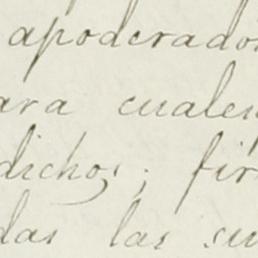 apoderado
ara cuales
dichos; fir
das las su